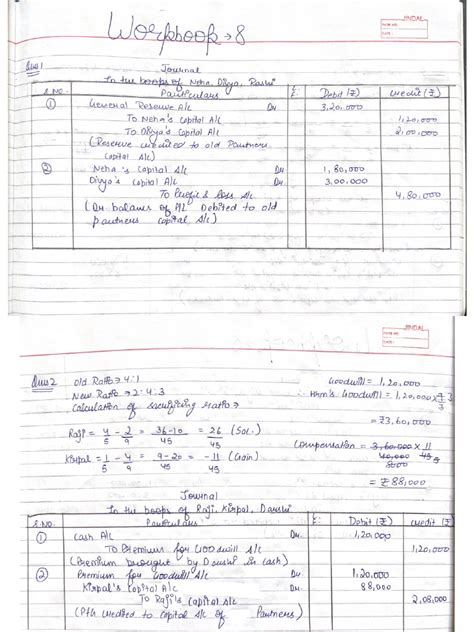 JINDAL
PAGE NO.
DATE:
Workbook → 8
Ques 1
Journal
In the books of Neha, Divya, Rashi
S.NO. Particulars L.F. Debit (₹) Credit (₹)
① General Reserve A/c Dr. 3,20,000
To Neha's Capital A/c 1,20,000
To Divya's Capital A/c 2,00,000
(Reserve credited to old Partners
Capital A/c)
② Neha's Capital A/c Dr. 1,80,000
Divya's Capital A/c Dr. 3,00,000
To Profit & Loss A/c 4,80,000
(Dr. balance of P/L Debited to old
partners capital A/c)
JINDAL
PAGE NO.
DATE:
Ques 2 Old Ratio → 4:1 Goodwill = 1,20,000
New Ratio → 2:4:3 Firm's Goodwill = 1,20,000 × 9/3
Calculation of sacrificing ratio →
= ₹3,60,000
Raji = 4/5 - 2/9 = 36-10/45 = 26/45 (Sac.)
Compensation = 3,60,000 × 11/45
Kirpal = 1/5 - 4/9 = 9-20/45 = -11/45 (Gain)
= ₹88,000
Journal
In the books of Raji, Kirpal, Darshi
S.NO. Particulars L.F. Debit (₹) Credit (₹)
① Cash A/c 1,20,000
To Premium for Goodwill A/c 1,20,000
(Premium brought by Darshi in cash)
② Premium for Goodwill A/c 1,20,000
Kirpal's Capital A/c 88,000
To Raji's Capital A/c 2,08,000
credited to Capital A/c of Partners)